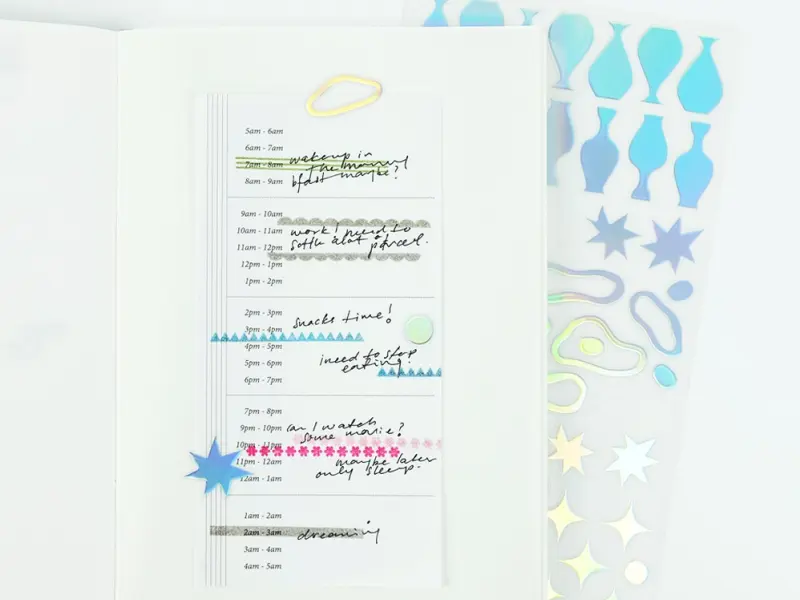 5am - 6am
6am - 7am
7am - 8am
8am - 9am
wakeup in
the morning
bfast maybe?
9am - 10am
10am - 11am
11am - 12pm
12pm - 1pm
1pm - 2pm
work! need to
settle alot parcel.
2pm - 3pm
3pm - 4pm
4pm - 5pm
5pm - 6pm
6pm - 7pm
snacks time!
i need to stop
eating!
7pm - 8pm
9pm - 10pm
10pm - 11pm
11pm - 12am
12am - 1am
can I watch
some movie?
maybe later
only sleep.
1am - 2am
2am - 3am
3am - 4am
4am - 5am
dreaming